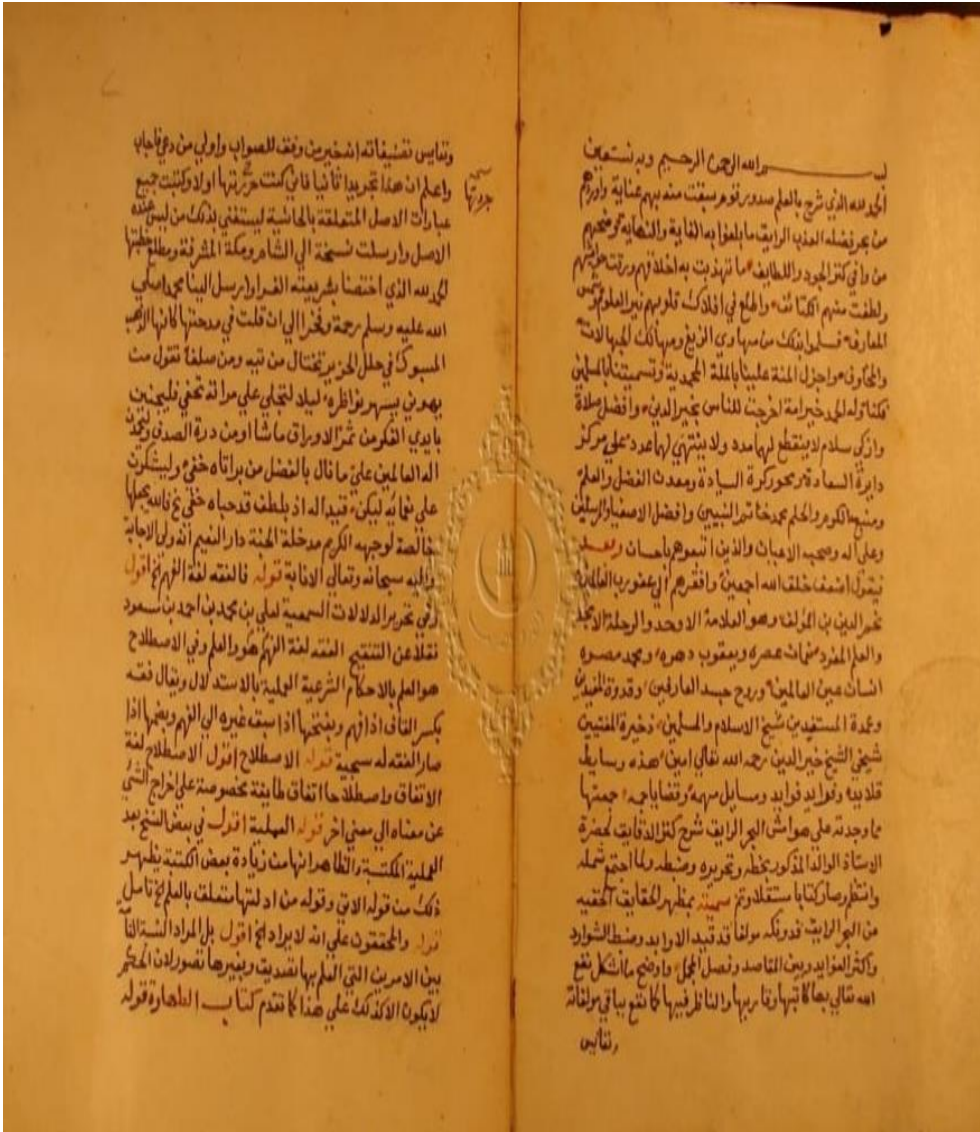 بسم الله الرحمن الرحيم وبه نستعين
الحمد لله الذي شرح بالعلم صدور قوم سبقت منه بهم عناية واوردهم
من بحر فضله العذب الرايق ما بلغوا به الغاية والنهاية ومنحهم
من وافي كنز الجود واللطايف ما تهذبت به اخلاقهم ورقت حواشيهم
ولطفت منهم الكثائف واطلع في افلاك قلوبهم نير العلوم وشمس
المعارف فسلموا بذلك من مهاوي الزيغ ومهالك الجهالات
والمخاوف واجزل المنة علينا بالملة المحمدية وتسميتنا بالمسلمين
فكنا وله الحمد خير امة اخرجت للناس بخير الدين وافضل صلاة
وازكى سلام لا ينقطع لهما مدد ولا ينتهي لهما عدد على مركز
دايرة السعادة ومحور كرة السيادة ومعدن الفضل والعلم
ومنبع الكرم والحلم محمد خاتم النبيين وافضل الاصفيا والمرسلين
وعلى اله وصحبه الاعيان والذين اتبعوهم باحسان وبعد
فيقول اضعف خلق الله اجمعين وافقرهم الي عفو رب العالمين
نجم الدين بن المؤلف وهو العلامة الاوحد والرحلة الامجد
والعلم المفرد نعمان عصره ويعقوب دهره ومحمد مصره
انسان عين العالمين وروح جسد العارفين وقدوة المفيدين
وعمدة المستفيدين شيخ الاسلام والمسلمين ذخيرة المفتيين
شيخي الشيخ خير الدين رحمه الله تعالى امين هذه وسايط
قلايد وفوايد فوايد ومسايل مهمه وقضايا جمه جمعتها
مما وجدته على هوامش البحر الرايق شرح كنز الدقايق لحضرة
الاستاذ الوالد المذكور بخطه وتحريره وضبطه ولما اجتمع شمله
وانتظم وصار كتابا مستقلا وتم سميته بمظهر الحقايق الخفيه
من البحر الرايق فدونكه مولفا قد قيد الاوابد وضبط الشوارد
واكثر الفوايد وبين المقاصد وفصل المجمل واوضح ما اشكل نفع
الله تعالى بها كاتبها وقاريها والناظر فيها كما نفع بباقي مولفاته
ونفايس
ونفايس تصنيفاته انه خير من وفق للصواب واولي من دعي فاجاب
واعلم ان هذا تجريدا ثانيا فاني كنت حررتها اولا وكتبت جميع
جردتها
عبارات الاصل المتعلقة بالحاشية ليستغني بذلك من ليس عنده
الاصل وارسلت نسخة الي الشام ومكة المشرفة ومطلع خطبتها
الحمد لله الذي اختصنا بشريعته الغرا وارسل الينا محمدا صلي
الله عليه وسلم رحمة وفخرا الي ان قلت في مدحتها كانها الذهب
المسبوك في حلل الحرير تختال من تيه ومن صلف تقول من
يهوني يسهر نواظره ليلا لتجلي علي مراته تحفي فليجنين
بايدي الفكر من ثمر الاوراق ما شا او من درة الصدف وليحمدن
اله العالمين علي ما نال بالفضل من براتاه خفي وليشكرن
علي نعمائه ليكن قيدا له اذ بلطف قد حباه خفي نخ فالله يجعلها
خالصة لوجهه الكريم مدخلة الجنة دار النعيم انه ولي الاجابة
واليه سبحانه وتعالي الانابة قوله فالفقه لغة الفهم الخ اقول
وفي تحرير الدلالات السمعية لعلي بن محمد بن احمد بن مسعود
نقلا عن التنقيح الفقه لغة الفهم هو والعلم وفي الاصطلاح
هو العلم بالاحكام الشرعية العملية بالاستدلال ويقال فقه
بكسر القاف اذا فهم وبفتحها اذا سبقه غيره الي الفهم وبضمها اذا
صار الفقه له سجية قوله الاصطلاح اقول الاصطلاح لغة
الاتفاق واصطلاحا اتفاق طايفة مخصوصة علي اخراج الشي
عن معناه الي معني اخر قوله العملية اقول في بعض النسخ بعد
العملية المكتسبة والظاهر انها من زيادة بعض الكتبة يظهر
ذلك من قوله الاتي وقوله من ادلتها متعلق بالعلم الخ تامل
قوله والمحققون علي انه لا يراد الخ اقول بل المراد النسبة التامة
بين الامرين التي العلم بها تصديق وبغيرها تصور لان الحكم
لا يكون الا كذلك علي هذا كما تقدم كتاب الطهارة قوله